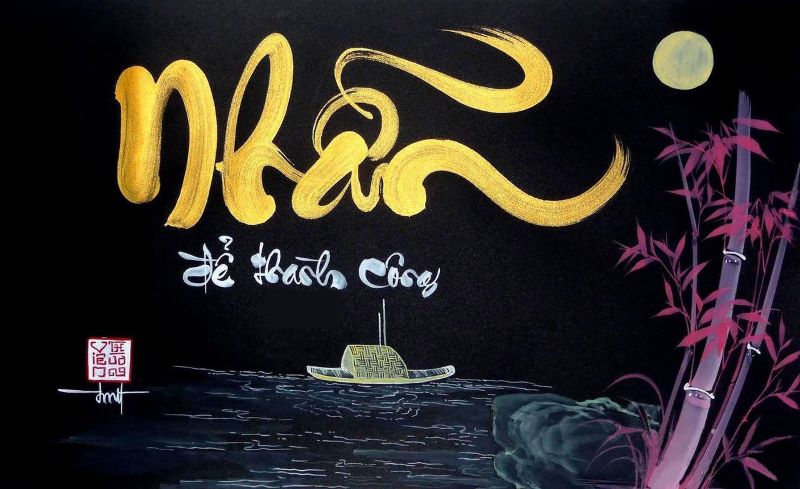 Nhẫn
để thành công